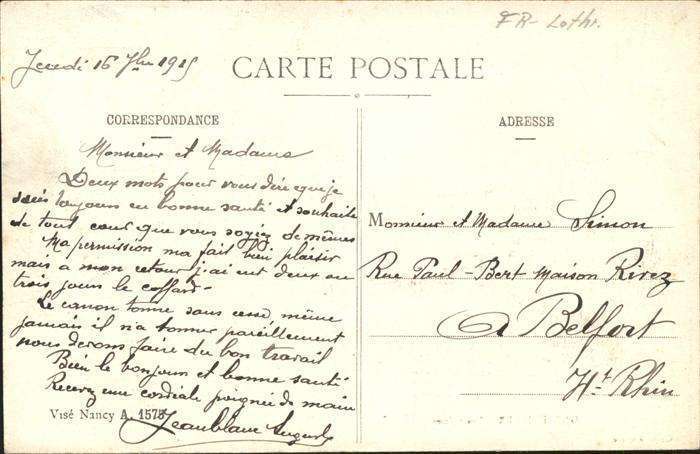 FR- Lothr.
Jeudi 16 7bre 1915
CARTE POSTALE
CORRESPONDANCE
ADRESSE
Monsieur et Madame
Deux mots pour vous dire que je
suis toujours en bonne santé et souhaite
de tout cœur que vous soyiez de mêmes
Ma permission ma fait bien plaisir
mais a mon retour j'ai eut deux ou
trois jours le caffard.
Le canon tonne sans cesse, même
jamais il n'a tonner pareillement
nous devons faire du bon travail
Bien le bonjour et bonne santé
Recevez une cordiale poignée de main
Jeanblanc
Visé Nancy A. 1575
Monsieur et Madame Simon
Rue Paul-Bert Maison Rivez
A Belfort
Ht Rhin